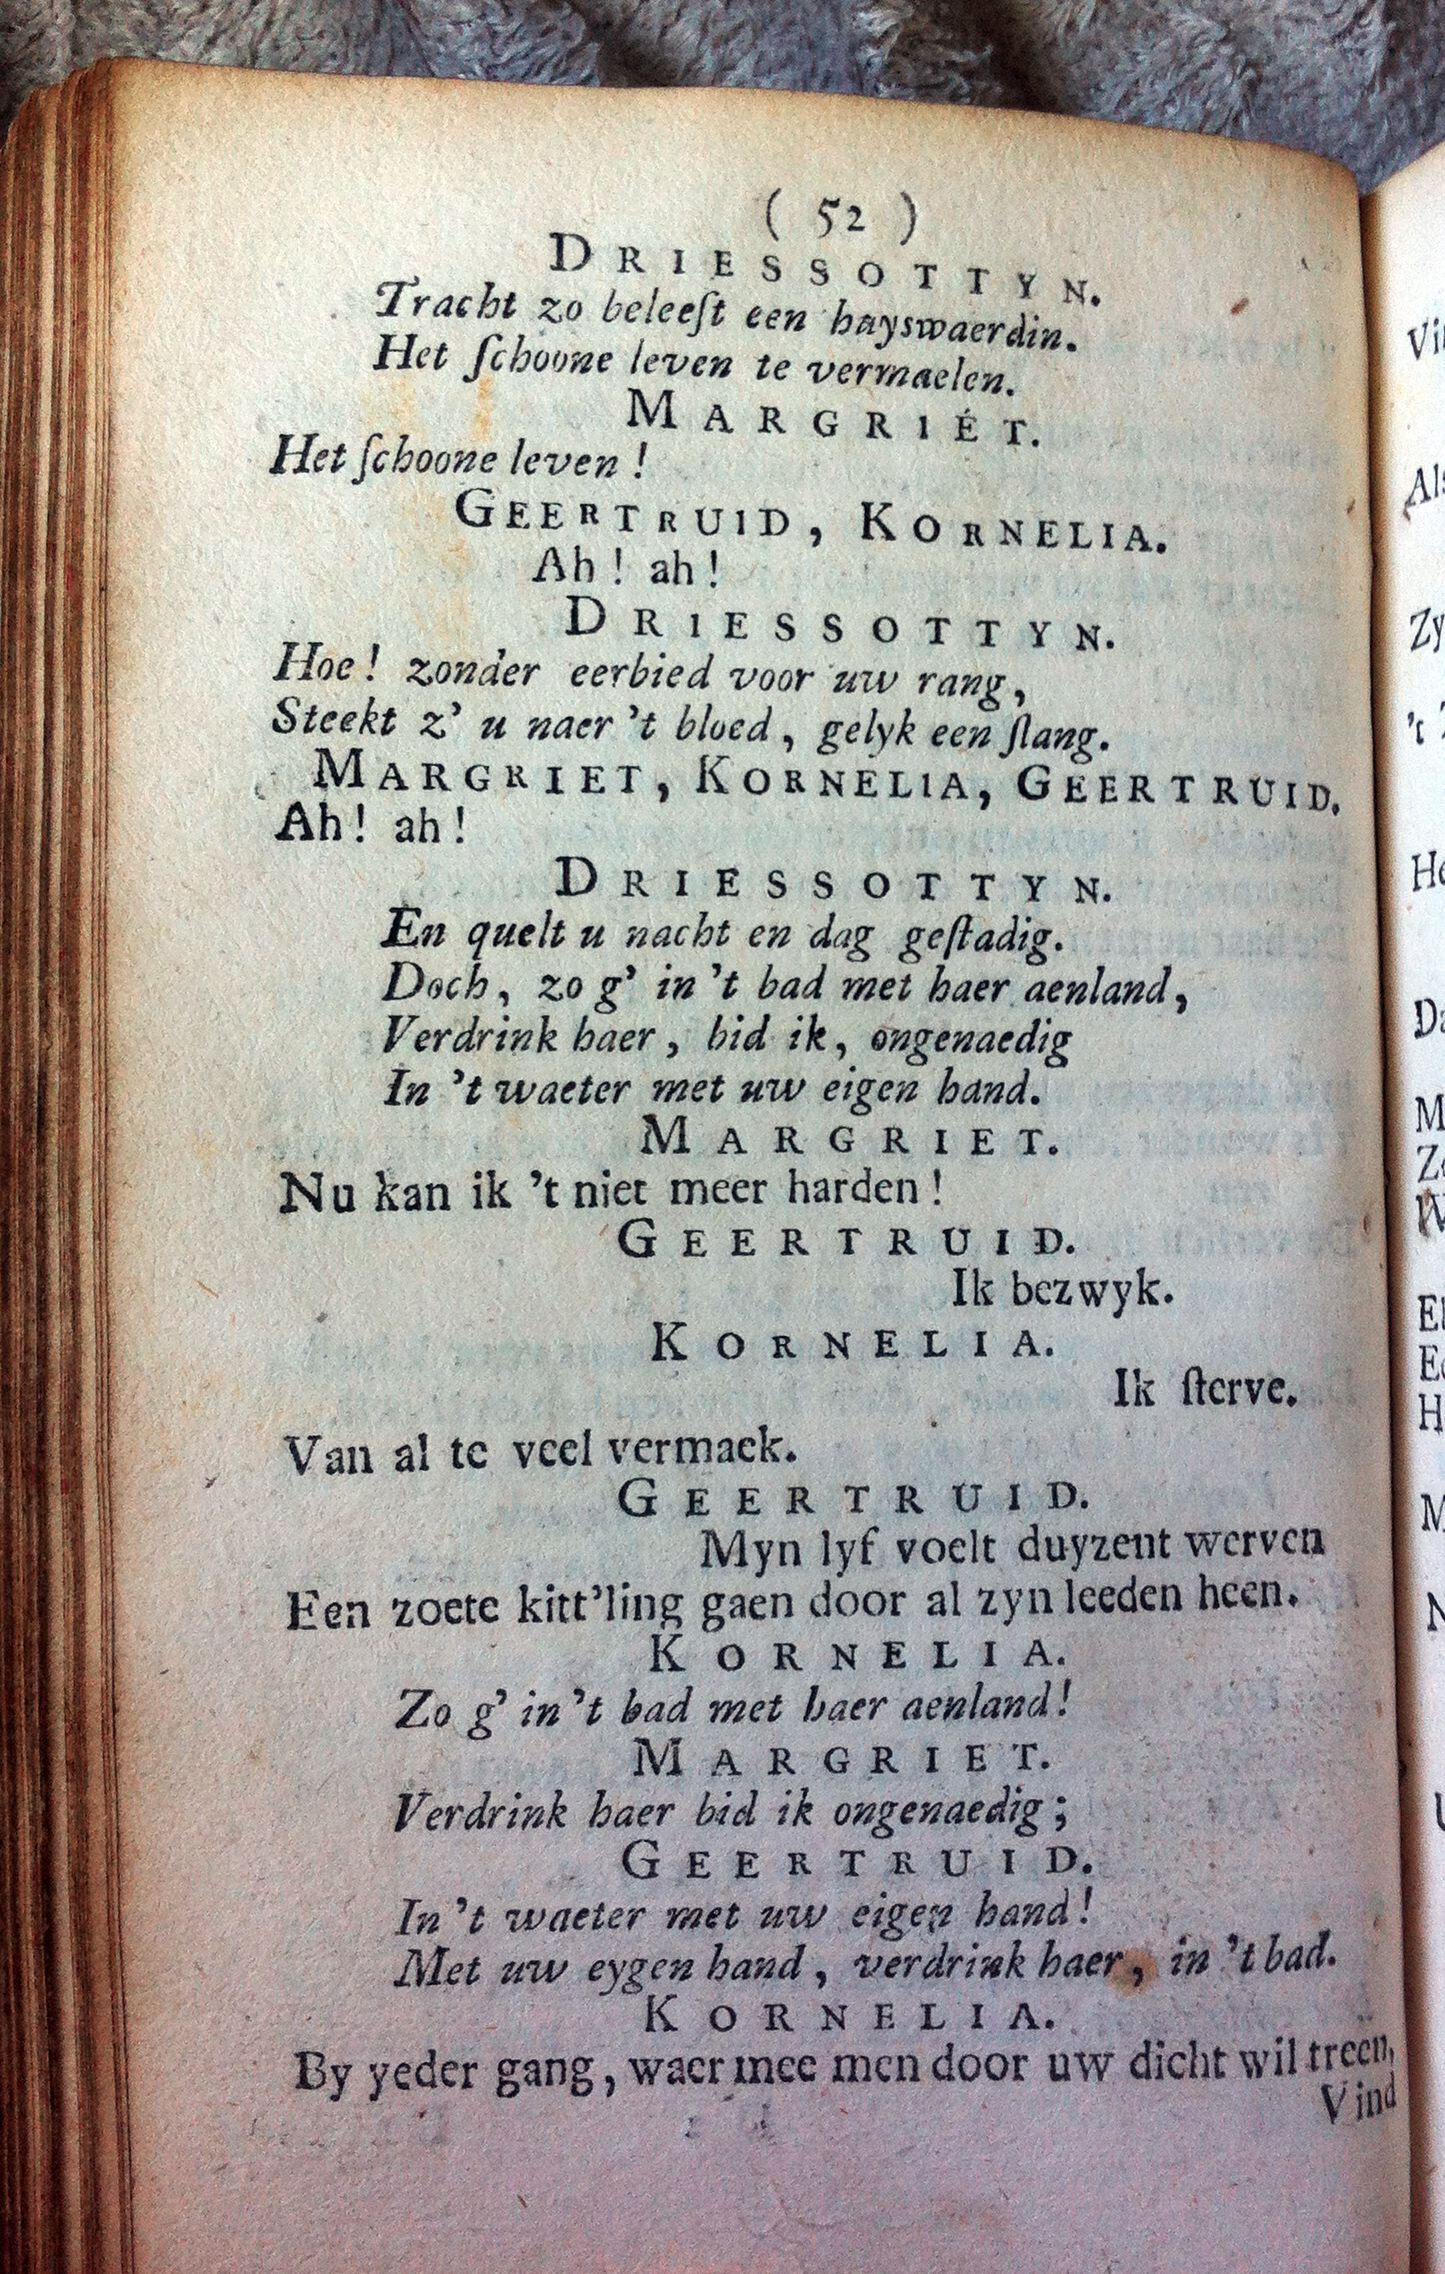 ( 52 )
DRIESSOTTYN.
Tracht zo beleeſt een hayswaerdin.
Het ſchoone leven te vermaelen.
MARGRIÉT.
Het ſchoone leven !
GEERTRUID, KORNELIA.
Ah ! ah !
DRIESSOTTYN.
Hoe ! zonder eerbied voor uw rang,
Steekt z' u naer 't bloed, gelyk een ſlang.
MARGRIET, KORNELIA, GEERTRUID.
Ah ! ah !
DRIESSOTTYN.
En quelt u nacht en dag geſtadig.
Doch, zo g' in 't bad met haer aenland,
Verdrink haer, bid ik, ongenaedig
In 't waeter met uw eigen hand.
MARGRIET.
Nu kan ik 't niet meer harden !
GEERTRUID.
Ik bezwyk.
KORNELIA.
Ik ſterve.
Van al te veel vermaek.
GEERTRUID.
Myn lyf voelt duyzent werven
Een zoete kitt'ling gaen door al zyn leeden heen.
KORNELIA.
Zo g' in 't bad met haer aenland !
MARGRIET.
Verdrink haer bid ik ongenaedig ;
GEERTRUID.
In 't waeter met uw eigen hand !
Met uw eygen hand, verdrink haer, in 't bad.
KORNELIA.
By yeder gang, waer mee men door uw dicht wil treen,
Vind